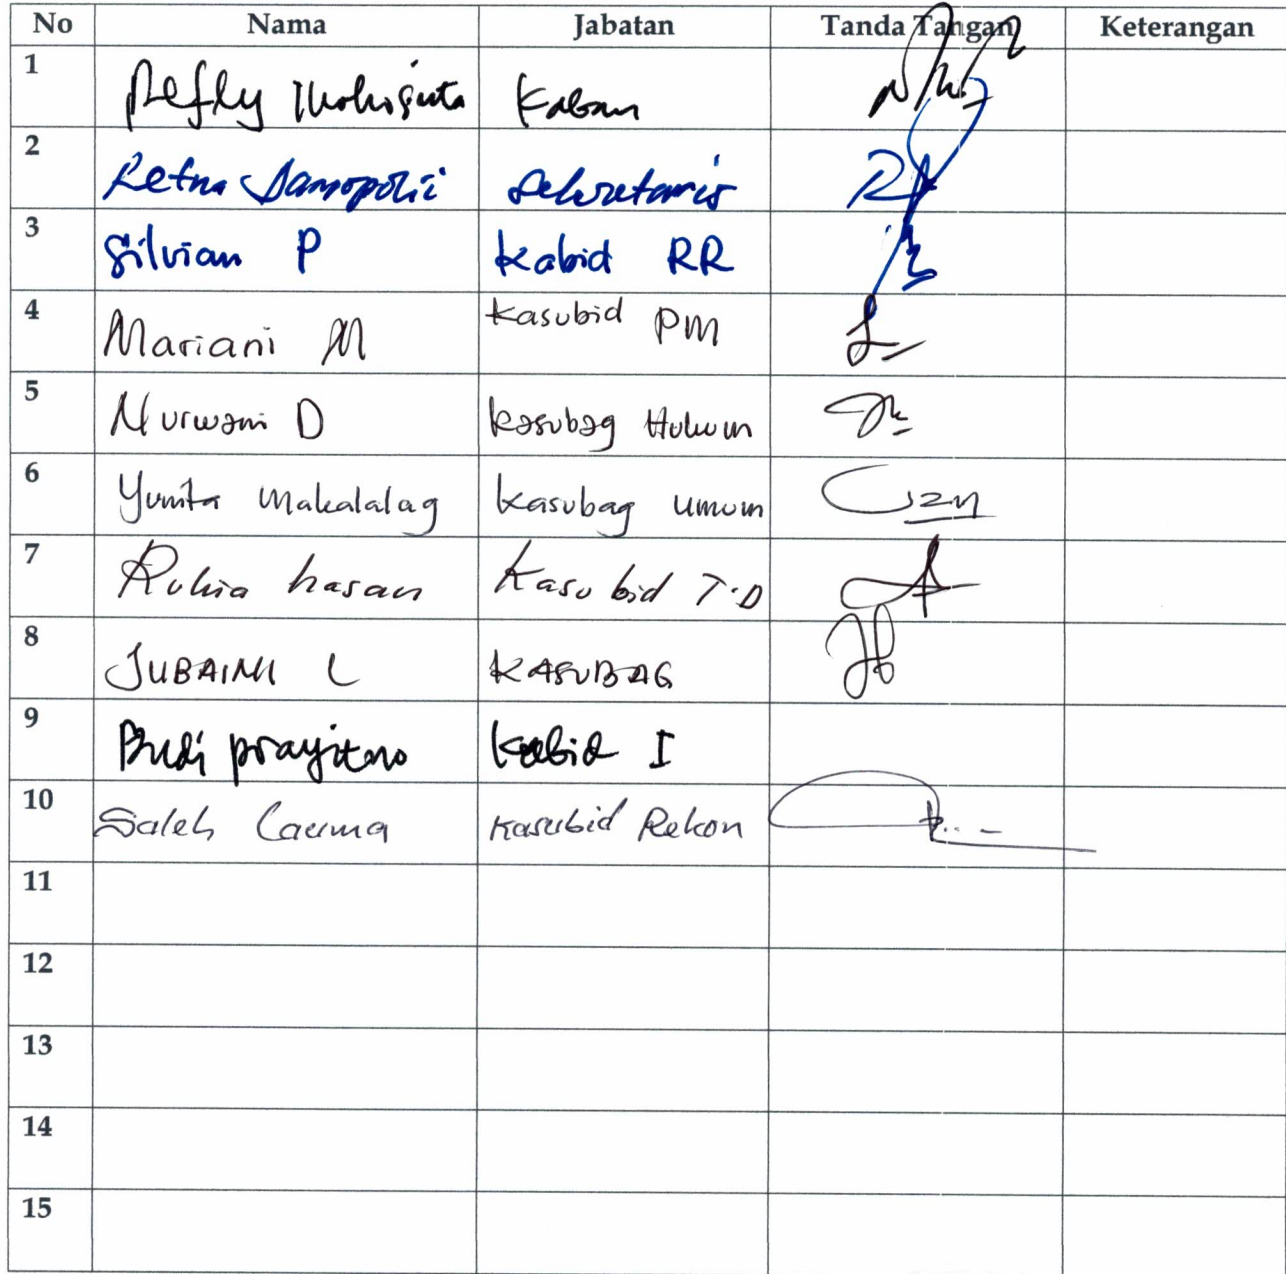 No Nama Jabatan Tanda Tangan Keterangan
1 Refly Mokoginta Kaban
2 Retna Damopolii Sekretaris
3 Silvian P Kabid RR
4 Mariani M Kasubid PM
5 Nurwani D Kasubag Hukum
6 Yunita Makalalag Kasubag Umum
7 Rukia hasan Kasubid T.D
8 JUBAINI L KASUBAG
9 Budi prayitno Kabid I
10 Saleh Lauma Kasubid Rekon
11
12
13
14
15